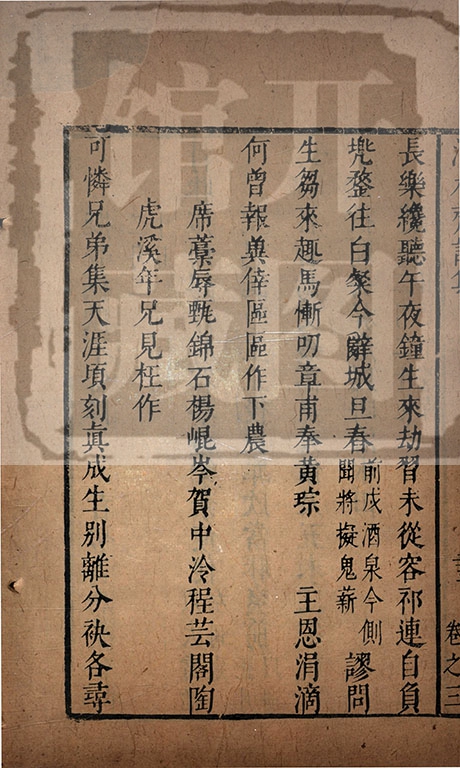 長樂纔聽午夜鐘生來劫習未從容祁連自負
兠鍪往白粲今辭城旦舂前戍酒泉今側聞將擬鬼薪謬問
生芻來趣馬慚叨章甫奉黄琮 主恩涓滴
何曾報奠倖區區作下農
席藳辱甄錦石楊崐岑賀中泠程芸閣陶
虎溪年兄見枉作
可憐兄弟集天涯頃刻眞成生別離分袂各尋
卷之三